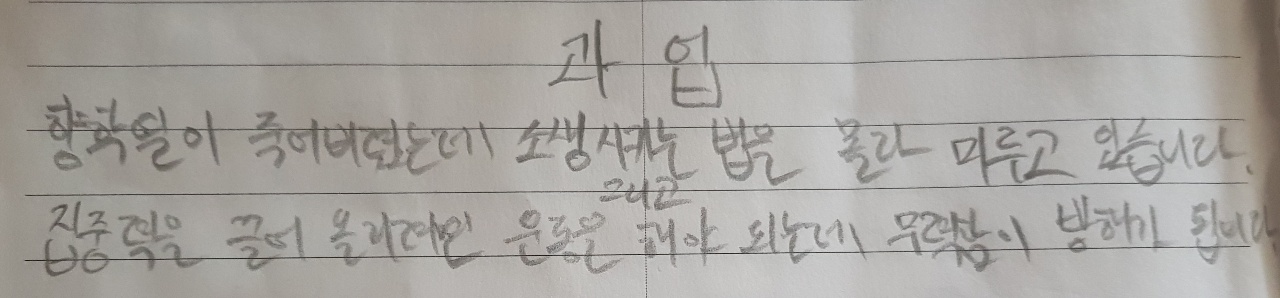 과 업
향학열이 죽어버렸는데 소생시키는 법을 몰라 미루고 있습니다.
그리고
집중력을 끌어 올리려면 운동을 해야 되는데 무력감이 방해가 됩니다